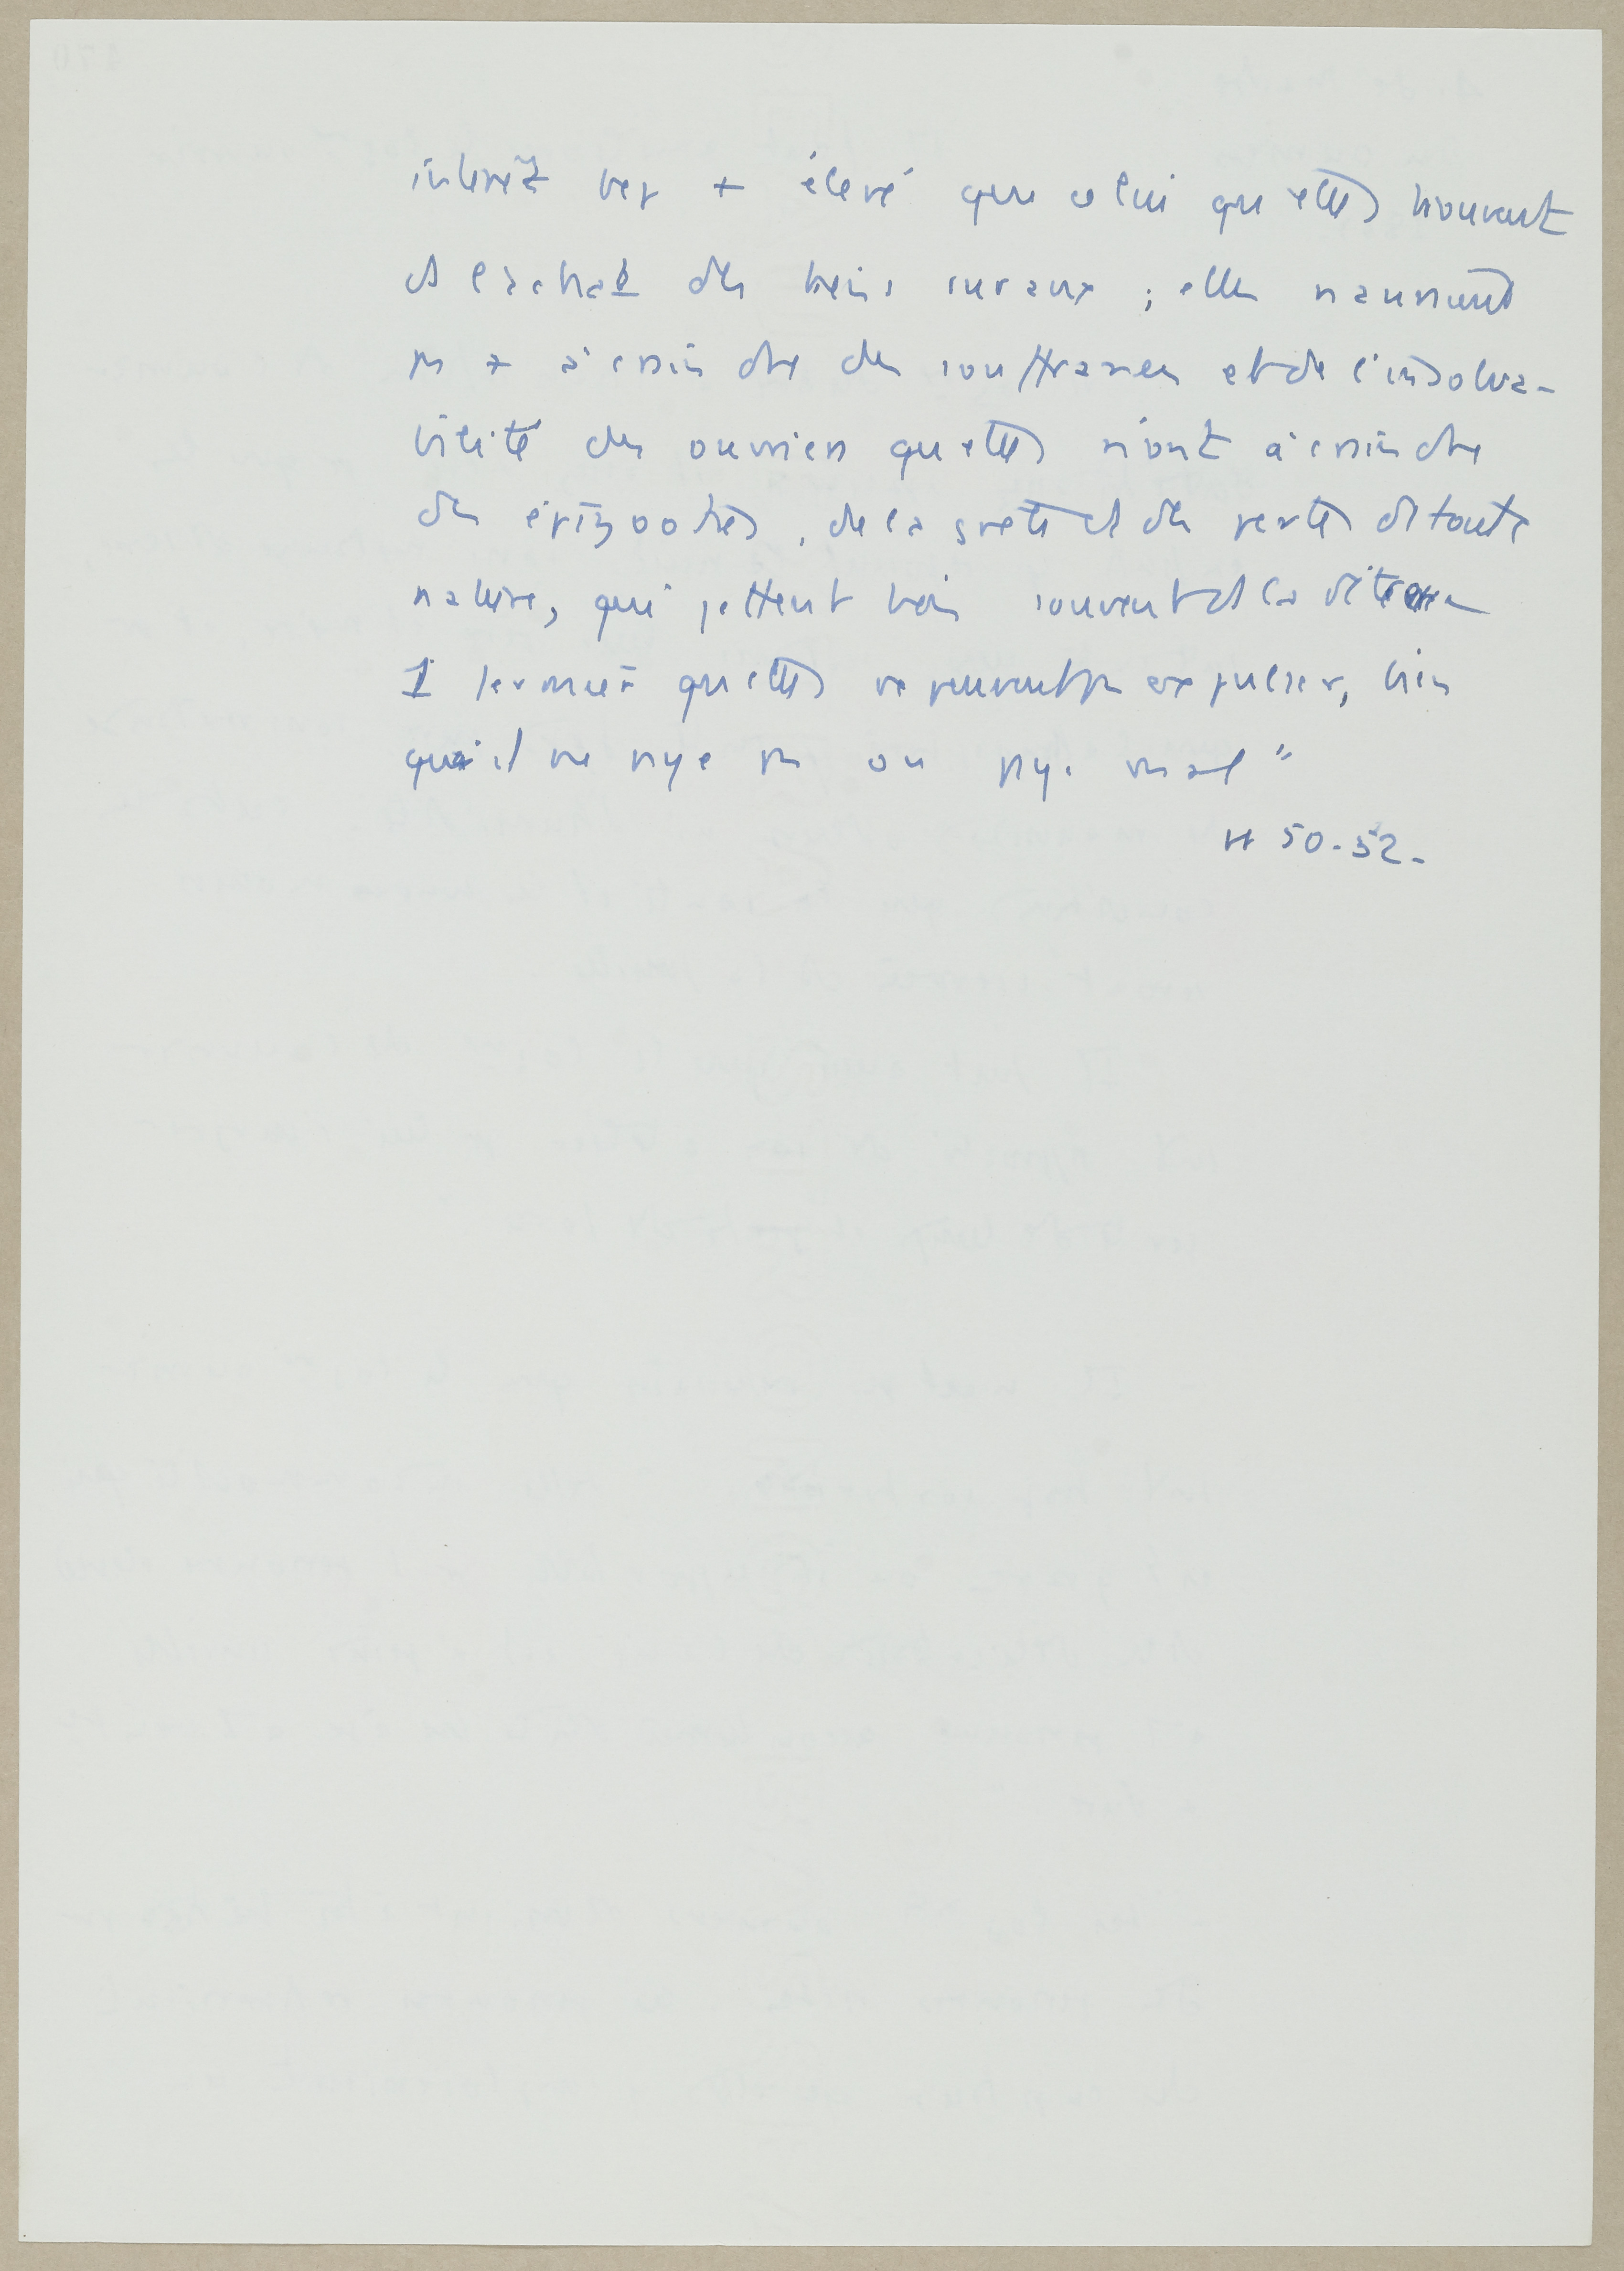 intérêt bcp + élevé que celui qu'elles trouvent
ds l'achat des biens ruraux ; elles n'auraient
pas + à craindre des souffrances et de l'insolva-
bilité des ouvriers qu'elles n'ont à craindre
des épizooties, de la grêle et des pertes de toute
nature, qui jettent bien souvent ds la détresse
1 fermier qu'elles ne peuvent pas expulser, bien
qu'il ne paye pas ou paye mal"
50-52-